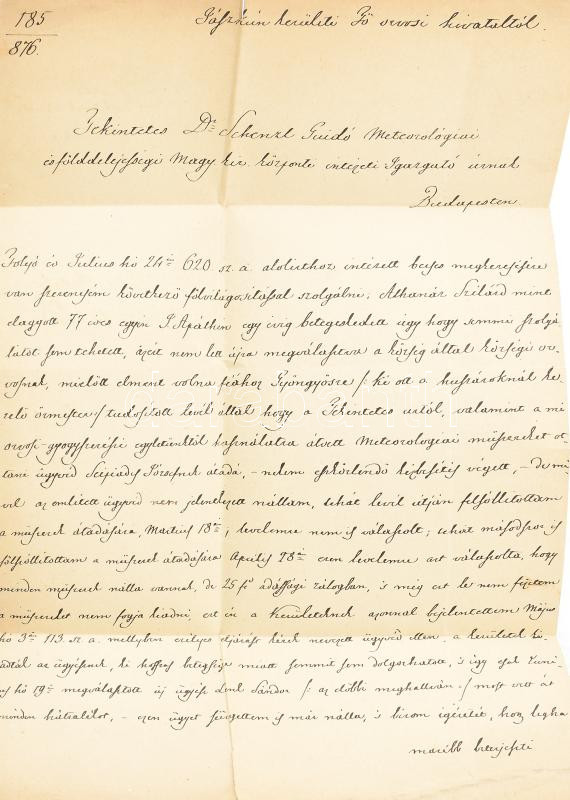 185
876.
Jászkún kerületi Fő orvosi hivataltól.
Tekintetes Dr Schenzl Guidó Meteorológiai
és földdelejességi Magy. kir. központi intézeti Igazgató úrnak
Budapesten
Folyó év Július hó 24én 620 sz. a. alolirthoz intézett becses megkeresésére
van szerencsém következő fölvilágosítással szolgálni; Athanár Szilárd mint
elaggott 77 éves egyén J. Apáthin egy évig betegeskedett úgy hogy semmi szolgá
latot sem tehetett, azért nem lett újra megválasztva a község által községi or-
vosnak, mielőtt elment volna fiához Gyöngyösre /: ki ott a huszároknál ke-
zelő őrmester :/ tudósított levél által hogy a Tekintetes úrtól, valamint a mi
orvosi-gyógyszerészi egyletünktől használatra átvett Meteorologiai műszereket ot-
tani ügyvéd Szijjadis Józsefnek átadá, – nekem eskörlendő kézbesítés végett, – de mi
vel az említett ügyvéd nem jelentkezett nállam, tehát levél útján felszóllítottam
a műszerek átadására, Martius 18án; levelemre nem is válaszolt; tehát másodszor is
fölszóllítottam a műszerek átadására Április 28án ezen levelemre azt válaszolta, hogy
minden műszerek nálla vannak, de 25 ft adóssági zálogban, is míg ezt le nem fizetem
a műszereket nem fogja kiadni, ezt én a Kerületeknek azonnal bejelentettem Május
hó 3án 113. sz. a. mellyben erélyes eljárást kérek nevezett ügyvéd ellen. a kerületek ki-
adták az ügyésznek, ki hosszas betegsége miatt semmit sem dolgozhatott, s így csak Juni-
us hó 19én megválasztott új ügyész Sándor /: az előbbi meghalván :/ most vett át
minden hátralékot, – ezen ügyet sürgettem is már nálla, is bírom ígéretét, hogy legha
marább beterjeszti